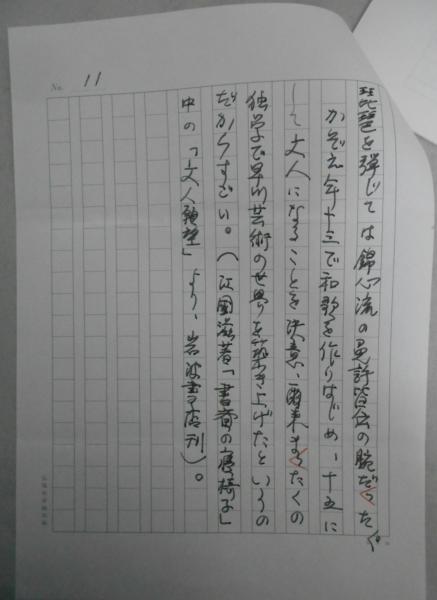 No. 11
琵琶を弾じては錦心流の免許皆伝の腕だった。
かぞえ年十三で和歌を作りはじめ、十五に
して文人になることを決意、爾来まったくの
独学で早川芸術の世界を築き上げたというの
だからすごい。(江國滋著「書斎の寝椅子」
中の「文人願望」より、岩波書店刊)。